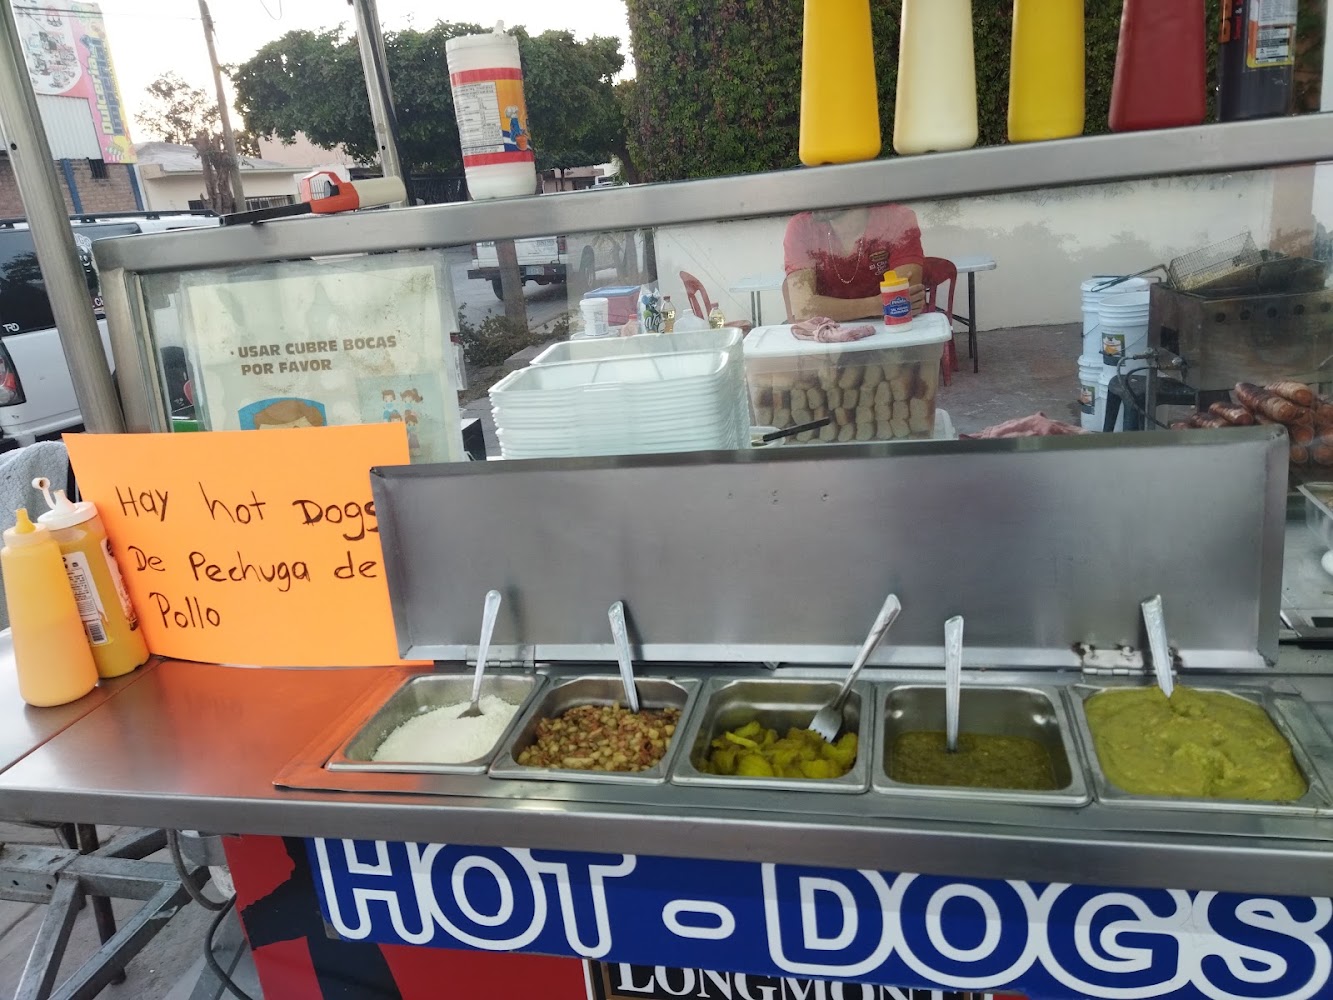 · USAR CUBRE BOCAS
POR FAVOR
Hay hot Dogs
De Pechuga de
Pollo
HOT-DOGS
LONGMONT